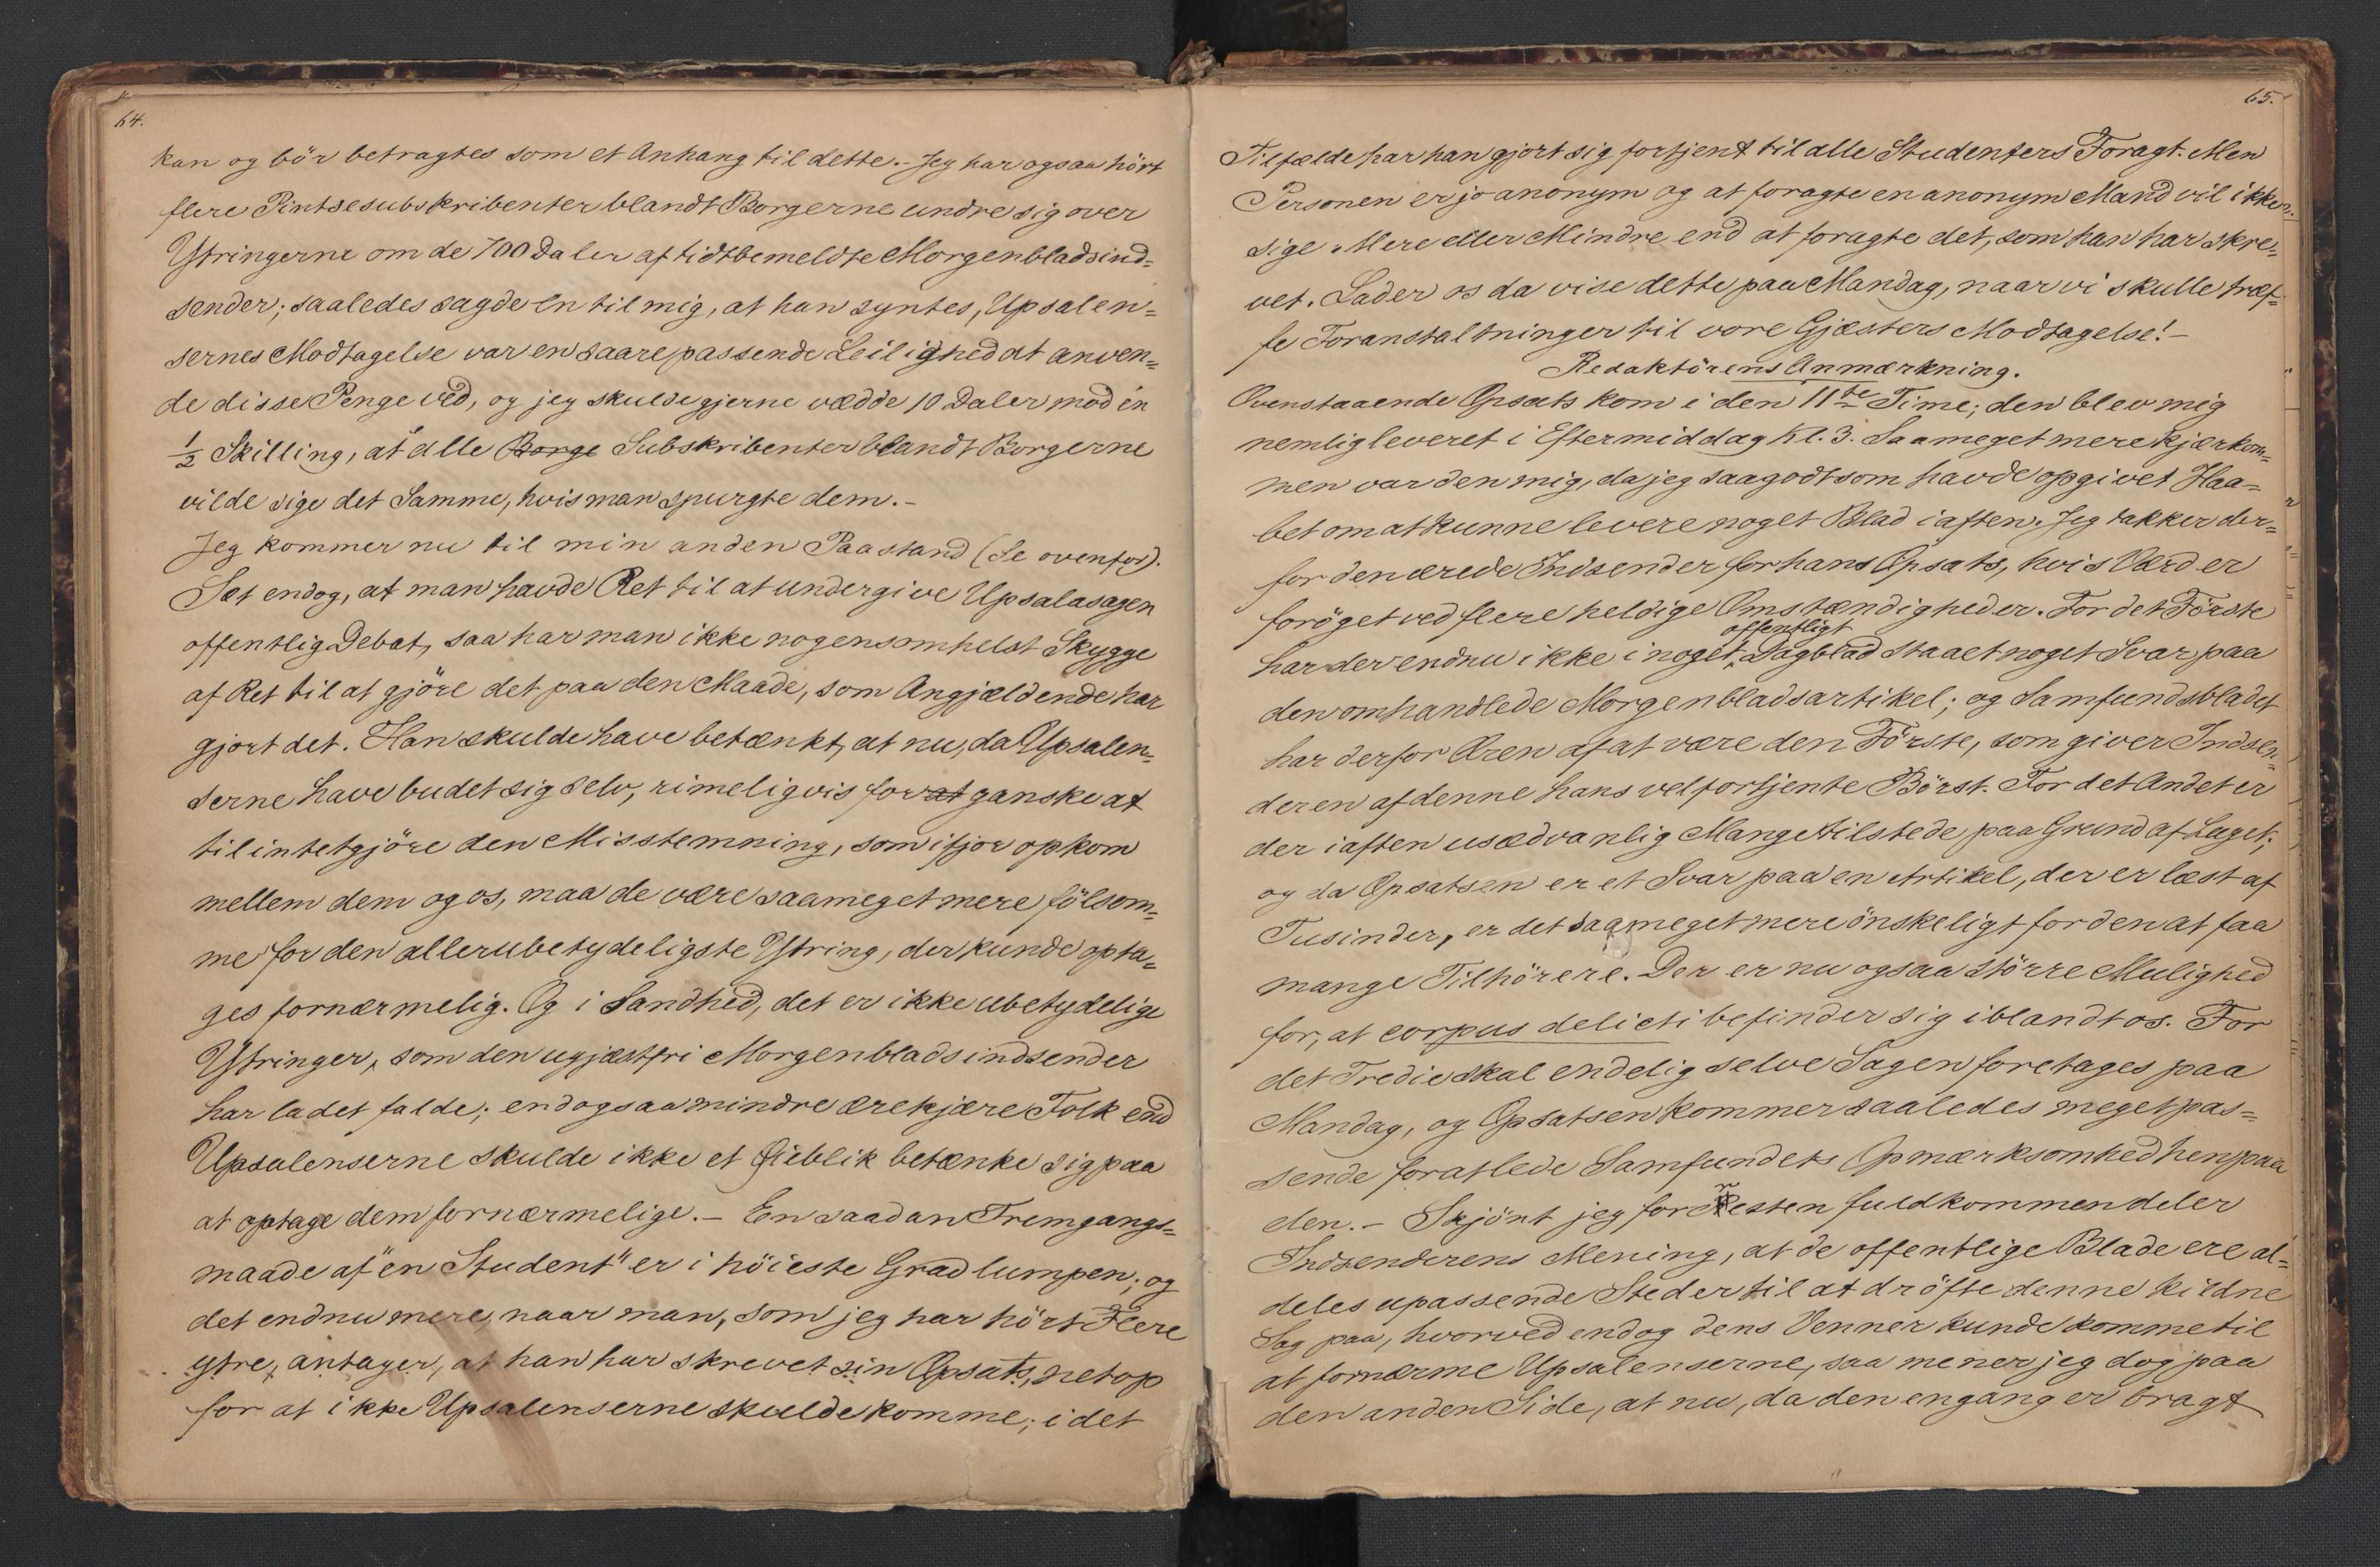 64.
kan og bör betragtes som et Anhang til dette. - Jeg har ogsaa hört
flere Pintsesubskribenter blandt Borgerne undre sig over
Ytringerne om de 700 Daler af tidtbemeldte Morgenbladsind=
sender; saaledes sagde En til mig, at han syntes, Upsalen=
sernes Modtagelse var en saare passende Leilighed at anven=
de disse Penge ved, og jeg skulde gjerne vædde 10 Daler mod én
½ Skilling, at alle Borge Subskribenter blandt Borgerne
vilde sige det Samme, hvis man spurgte dem. -
Jeg kommer nu til min anden Paastand (Se ovenfor).
Sæt endog, at man havde Ret til at undergive Upsalasagen
offentlig Debat, saa har man ikke nogensomhelst Skygge
af Ret til at gjöre det paa den Maade, som Angjældende har
gjort det. Han skulde have betænkt, at nu, da Upsalen=
serne have budet sig selv, rimeligvis for at ganske at
tilintetgjöre den Misstemning, som ifjor opkom
mellem dem og os, maa de være saameget mere fölsom=
me for den allerubetydeligste Ytring, der kunde opta=
ges fornærmelig. Og i Sandhed, det er ikke ubetydelige
Ytringer, som den ugjæstfri Morgenbladsindsender
har ladet falde; endogsaa mindre ærekjære Folk end
Upsalenserne skulde ikke et Øieblik betænke sig paa
at optage dem fornærmelige. - En saadan Fremgangs=
maade af "en Student" er i höieste Grad lumpen; og
det endnu mere, naar man, som jeg har hört Flere
ytre, antager, at han har skrevet sin Opsats, netop
for at ikke Upsalenserne skulde komme; i det
65.
Tilfælde har han gjort sig fortjent til alle Studenters Foragt. Men
Personen er jo anonym og at foragte en anonym Mand vil ikke
sige Mere eller Mindre end at foragte det, som han har skre=
vet. Lader os da vise dette paa Mandag, naar vi skulle træf=
fe Foranstaltninger til vore Gjæsters Modtagelse! -
Redaktörens Anmærkning.
Ovenstaaende Opsats kom i den 11te Time; den blev mig
nemlig leveret i Eftermiddag Kl. 3. Saameget mere kjærkom=
men var den mig, da jeg saagodtsom havde opgivet Haa=
bet om at kunne levere noget Blad iaften. Jeg takker der=
for den ærede Indsender for hans Opsats, hvis Værd er
foröget ved flere heldige Omstændigheder. For det Förste
offentligt
har der endnu ikke i noget Dagblad staaet noget Svar paa
den omhandlede Morgenbladsartikel; og Samfundsbladet
har derfor Æren af at være den Förste, som giver Indsen=
deren af denne hans velfortjente Börst. For det Andet er
der iaften usædvanlig Mange tilstede paa Grund af Laget;
og da Opsatsen er et Svar paa en Artikel, der er læst af
Tusinder, er det saameget mere önskeligt for den at faa
mange Tilhörere. Der er nu ogsaa större Mulighed
for, at corpus delicti befinder sig iblandt os. For
det Tredie skal endelig selve Sagen foretages paa
Mandag, og Opsatsen kommer saaledes meget pas=
sende for at lede Samfundets Opmærksomhed hen paa
den. - Skjönt jeg forresten fuldkommen deler
Indsenderens Mening, at de offentlige Blade ere al=
deles upassende Steder til at dröfte denne kildne
Sag paa, hvorved endog dens Venner kunde komme til
at fornærme Upsalenserne, saa mener jeg dog paa
den anden Side, at nu, da den engang er bragt